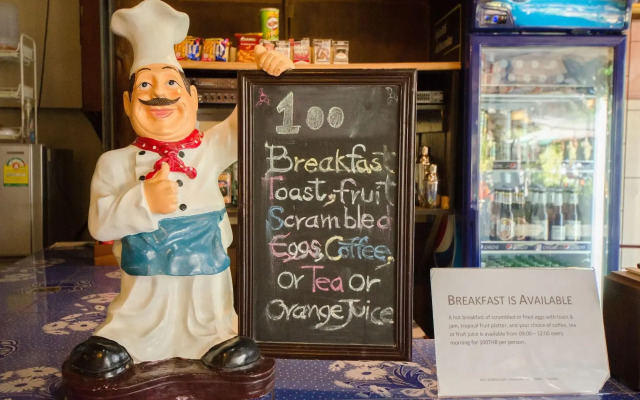 100
Breakfast
Toast, fruit
Scrambled
Eggs, Coffee,
or Tea or
Orange Juice
BREAKFAST IS AVAILABLE
A hot breakfast of scrambled or fried eggs with toast &
jam, tropical fruit platter, and your choice of coffee, tea
or fruit juice is available from 09:00 – 12:00 every
morning for 100THB per person.